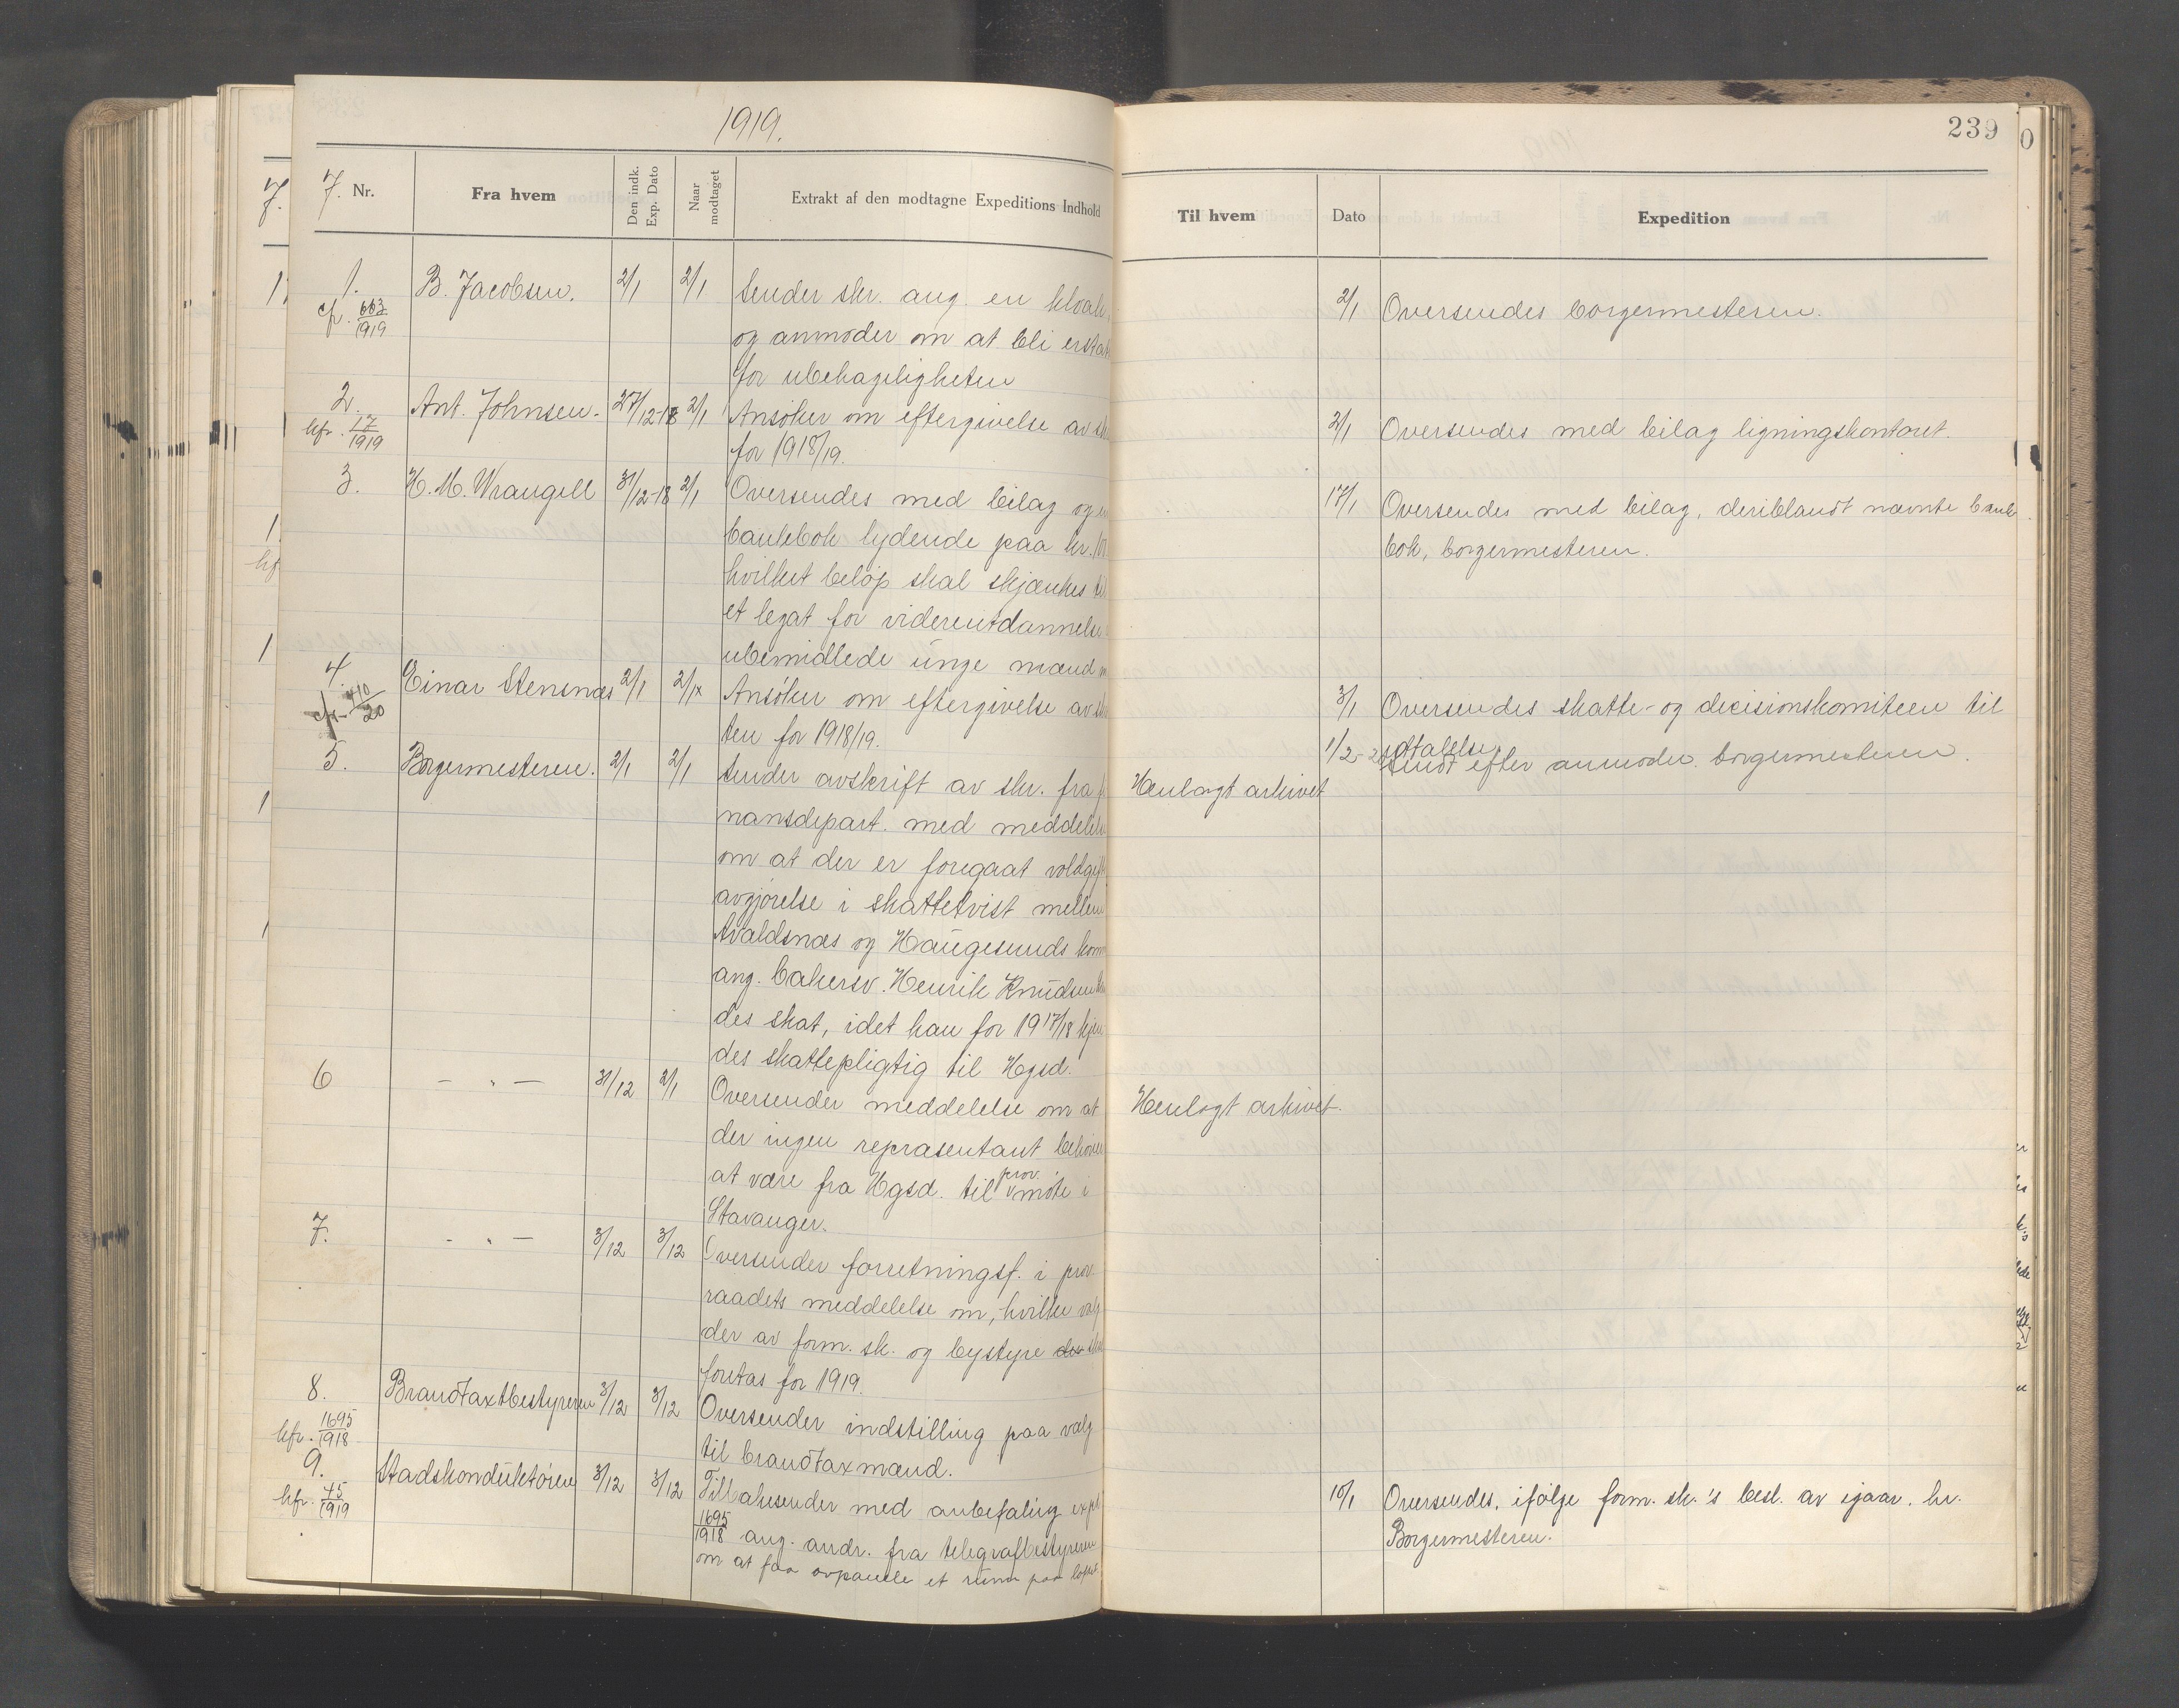 1919.
7. Nr.
Fra hvem
Den indk. Exp. Dato
Naar modtaget
Extrakt af den modtagne Expeditions Indhold
1.
cfr. 663/1919
B. Jacobsen.
2/1
2/1
Sender skr. ang. en kloak
og anmoder om at bli erstat
for ubehageligheten
2.
kfr. 17/1919
Ant. Johnsen.
27/12-18
2/1
Ansöker om eftergivelse av
for 1918/19.
3.
H. M. Wrangell
31/12-18
2/1
Oversendes med bilag og
bankbok lydende paa kr.
hvilket beløp skal skjænkes til
et legat for viderentdannelse
ubemidlede unge mænd
4.
cfr. 410/20
Einar Stensnæs
2/1
2/1
Ansöker om eftergivelse av
ten for 1918/19.
5.
Borgermesteren.
2/1
2/1
Sender avskrift av skr. fra
nansdepart. med meddelelse
om at der er foregaat voldgift
avgjørelse i skattetvist mellem
Avaldsnæs og Haugesunds kom
ang. bakersv. Henrik Knudsen
des skat, idet han for 1917/18 kjen
des skattepligtig til Hgsd.
6
- " -
31/12
2/1
Oversender meddelelse om at
der ingen repræsentant behöver
at være fra Hgsd. til prov. möte i
Stavanger.
7.
- " -
3/12
3/12
Oversender forretningsf. i prov.
raadets meddelelse om, hvilke valg
der av form. sk. og bystyre der skal
foretas for 1919.
8.
kfr. 1695/1918
Brandtaxtbestyreren
3/12
3/12
Oversender indstilling paa valg
til brandtaxmænd.
9.
kfr. 45/1919
Stadskonduktören
3/12
3/12
Tilbakesender med anbefaling exp.
1695/1918 ang. andr. fra telegrafbestyreren
om at faa avpanele et rum paa loftet
239
Til hvem
Dato
Expedition
2/1
Oversendes borgermesteren.
2/1
Oversendes med bilag ligningskontoret.
17/1
Oversendes med bilag, deriblandt nævnte bank
bok, borgermesteren.
3/1
Oversendes skatte- og decisionskomiteen til
udtalelse.
1/2-20
Sendt efter anmodn. borgermesteren.
Henlagt arkivet
Henlagt arkivet.
10/1
Oversendes, ifølge form. sk.'s besl. av igaar, hr.
Borgermesteren.